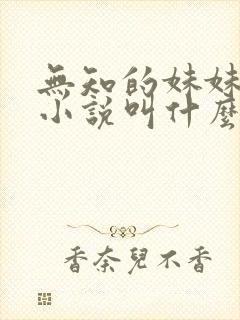 無知的妹妹
小說叫什麼
香奈兒不香